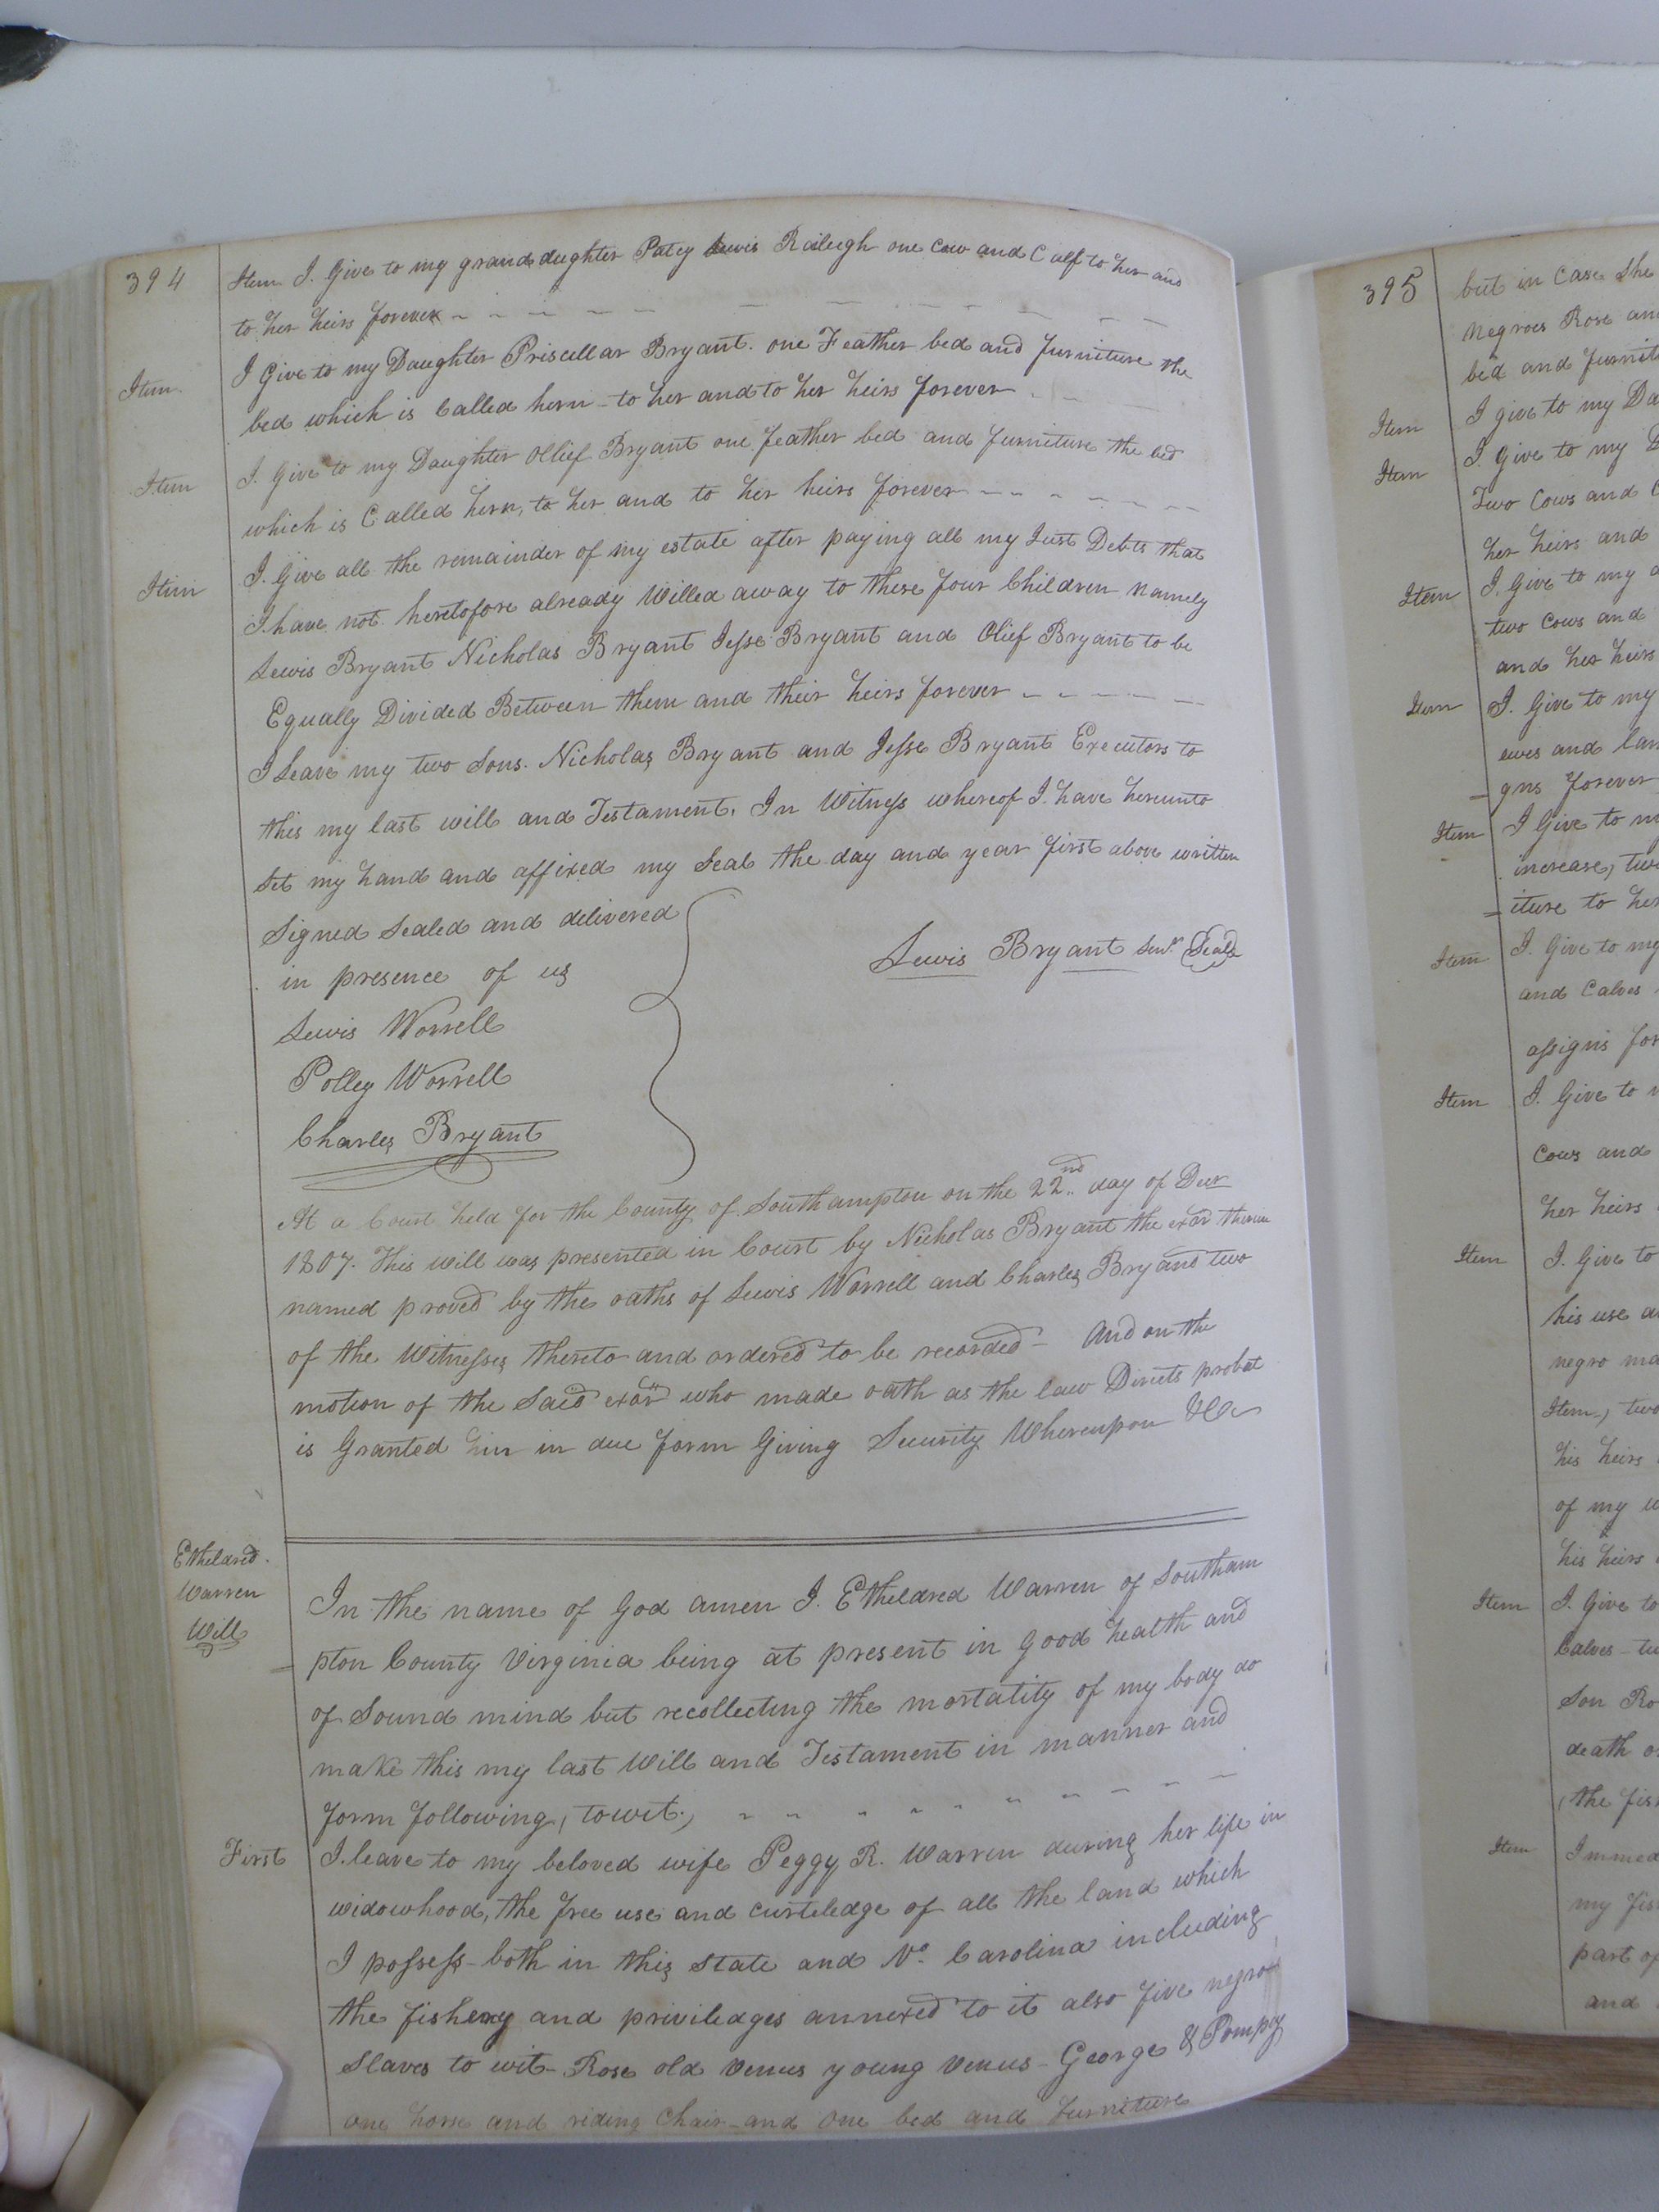 394
Item I. Give to my grand daughter Patey Lewis Raileigh one Cow and Calf to her and
to her heirs forever
Item I Give to my Daughter Priscillar Bryant. one Feather bed and furniture the
bed which is Called hern to her and to her heirs forever
Item I. Give to my Daughter Ollief Bryant one feather bed and furniture the bed
which is Called hern, to her and to her heirs forever
Item I. Give all the remainder of my estate after paying all my Just Debts that
I have not heretofore already Willed away to these four Children namely
Lewis Bryant Nicholas Bryant Jesse Bryant and Olief Bryant to be
Equally Divided Between them and their heirs forever
I Leave my two Sons. Nicholas Bryant and Jesse Bryant Executors to
this my last will and Testament. In Witness whereof I. have hereunto
Set my hand and affixed my Seal the day and year first above written
Signed Sealed and delivered
in presence of us
Lewis Bryant Senr. Seal
Lewis Worrell
Polley Worrell
Charles Bryant
At a Court held for the County of Southampton on the 22nd day of Decr
1807. This will was presented in Court by Nicholas Bryant the exor therein
named proved by the oaths of Lewis Worrell and Charles Bryand two
of the Witnesses thereto and ordered to be recorded - And on the
motion of the Said exor who made oath as the law Directs probat
is Granted him in due form Giving Security Whereupon &Ca
Etheldred.
Warren
Will
In the name of God amen I. Etheldred Warren of Southam
pton County Virginia being at present in good health and
of Sound mind but recollecting the mortality of my body do
make this my last Will and Testament in manner and
form following, towit,
First I. leave to my beloved wife Peggy R. Warren during her life in
widowhood, the free use and curteledge of all the land which
I possess both in this State and No. Carolina including
the fishery and priviledges annexed to it also five negro
Slaves to wit - Rose old Venus young Venus - George & Pompey
one horse and riding Chair and one bed and furniture
395
but in Case She
negroes Rose and
bed and furnit
Item I give to my Da
Item I. Give to my D
Two Cows and C
her heirs and
Item I. Give to my d
two Cows and
and her heirs
Item I. Give to my
ewes and lam
gns forever
Item I Give to m
increase, two
iture to her
Item I. Give to my
and Calves
assigns for
Item I. Give to m
Cows and
her heirs
Item I. Give to
his use an
negro ma
Item, two
his heirs
of my w
his heirs
Item I. Give to
Calves - tw
Son Ro
death o
(the fish
Item Immed
my fis
part of
and